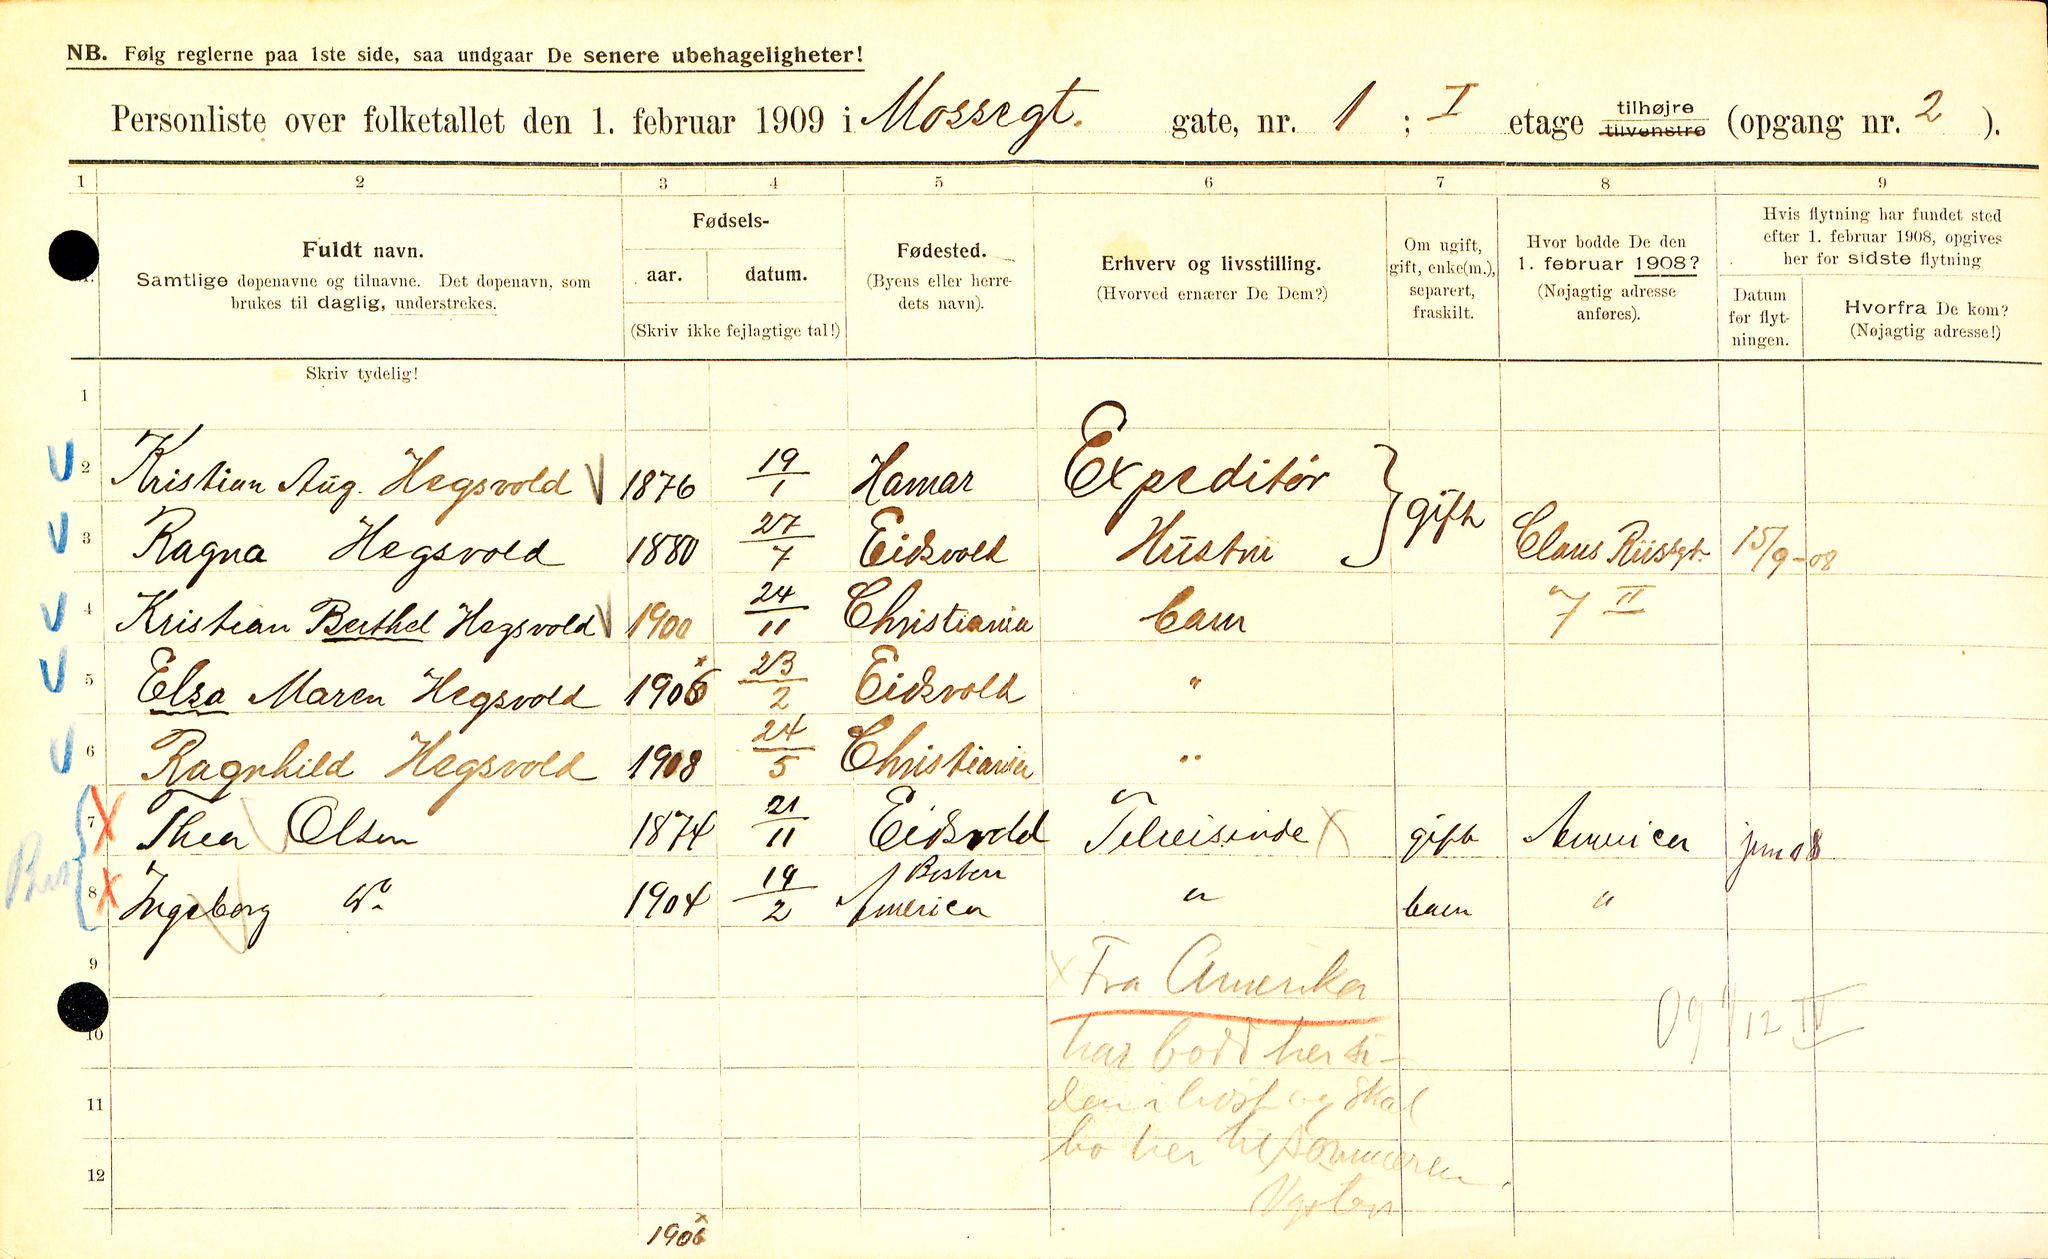 NB. Følg reglerne paa 1ste side, saa undgaar De senere ubehageligheter!
Personliste over folketallet den 1. februar 1909 i Mossegt. gate, nr. 1 ; I etage tilhøjre tilvenstre (opgang nr. 2 ).
1 2 3 4 5 6 7 8 9
Fuldt navn.
Samtlige døpenavne og tilnavne. Det døpenavn, som
brukes til daglig, understrekes.
Fødsels-
aar. datum.
(Skriv ikke fejlagtige tal!)
Fødested.
(Byens eller herre-
dets navn).
Erhverv og livsstilling.
(Hvorved ernærer De Dem?)
Om ugift,
gift, enke(m.),
separert,
fraskilt.
Hvor bodde De den
1. februar 1908?
(Nøjagtig adresse
anføres).
Hvis flytning har fundet sted
efter 1. februar 1908, opgives
her for sidste flytning
Datum
for flyt-
ningen.
Hvorfra De kom?
(Nøjagtig adresse!)
Skriv tydelig!
1
2 Kristian Aug. Hegsvold 1876 19/1 Hamar Expeditør gift
3 Ragna Hegsvold 1880 27/7 Eidsvold Hustru Claus Riisgt. 15/9-08
4 Kristian Berthel Hegsvold 1900 24/11 Christiania barn 7 II
5 Elsa Maren Hegsvold 1906 x 23/2 Eidsvold "
6 Ragnhild Hegsvold 1908 24/5 Christiania "
7 Thea Olsen 1874 21/11 Eidsvold Tilreisende X gift America jun 08
8 Ingeborg do 1904 19/2 Boston America " barn "
9 X Fra Amerika
10 har bodd her si-
11 den i høst og skal
12 bo her til sommeren.
09 1/12 IV
1906 x